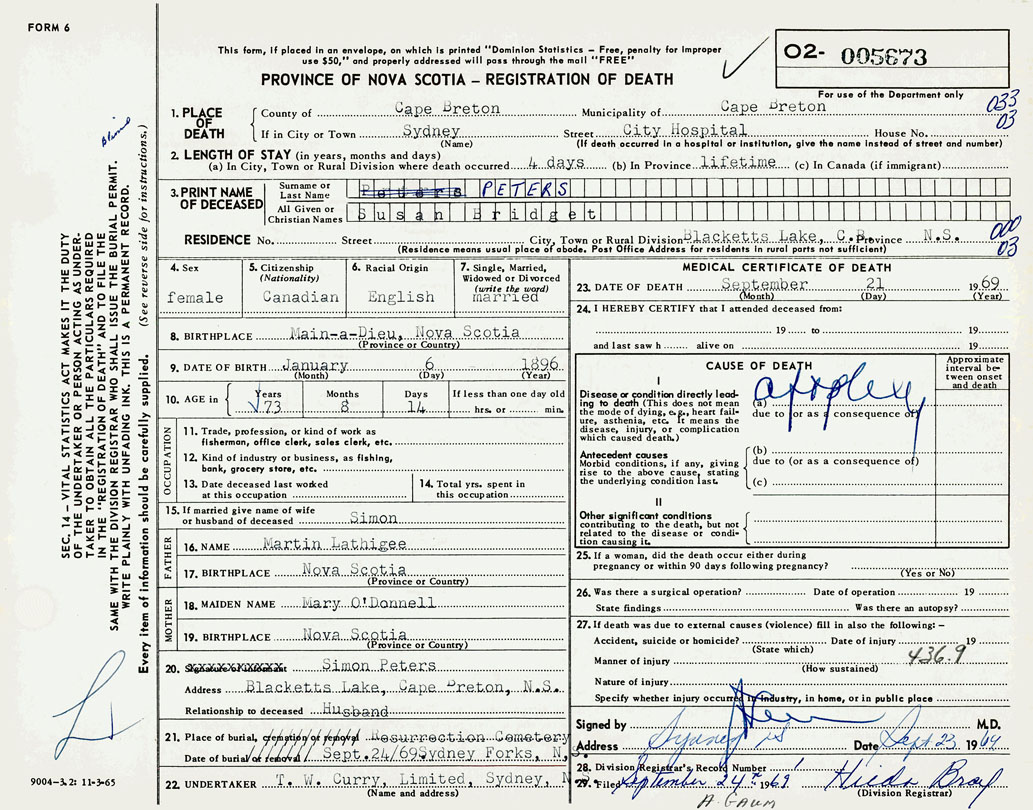 FORM 6
This form, if placed in an envelope, on which is printed "Dominion Statistics – Free, penalty for improper
use $50," and properly addressed will pass through the mail "FREE"
PROVINCE OF NOVA SCOTIA – REGISTRATION OF DEATH
O2- 005673
For use of the Department only
033
03
1. PLACE OF DEATH County of Cape Breton Municipality of Cape Breton
If in City or Town Sydney Street City Hospital House No.
(Name) (If death occurred in a hospital or institution, give the name instead of street and number)
2. LENGTH OF STAY (in years, months and days)
(a) In City, Town or Rural Division where death occurred 4 days (b) In Province lifetime (c) In Canada (if immigrant)
3. PRINT NAME OF DECEASED Surname or Last Name Peters PETERS
All Given or Christian Names Susan Bridget
000
03
RESIDENCE No. Street City, Town or Rural Division Blacketts Lake, C.B. Province N.S.
(Residence means usual place of abode. Post Office Address for residents in rural parts not sufficient)
4. Sex
female
5. Citizenship
(Nationality)
Canadian
6. Racial Origin
English
7. Single, Married,
Widowed or Divorced
(write the word)
married
8. BIRTHPLACE Main-a-Dieu, Nova Scotia
(Province or Country)
9. DATE OF BIRTH January 6 1896
(Month) (Day) (Year)
10. AGE in Years Months Days If less than one day old
73 8 14 hrs. or min.
OCCUPATION
11. Trade, profession, or kind of work as
fisherman, office clerk, sales clerk, etc.
12. Kind of industry or business, as fishing,
bank, grocery store, etc.
13. Date deceased last worked
at this occupation
14. Total yrs. spent in
this occupation
15. If married give name of wife
or husband of deceased Simon
FATHER
16. NAME Martin Lathigee
17. BIRTHPLACE Nova Scotia
(Province or Country)
MOTHER
18. MAIDEN NAME Mary O'Donnell
19. BIRTHPLACE Nova Scotia
(Province or Country)
20. Signature of Informant Simon Peters
Address Blacketts Lake, Cape Breton, N.S.
Relationship to deceased Husband
21. Place of burial, cremation or removal Resurrection Cemetery
Date of burial or removal Sept.24/69 Sydney Forks, N.S.
22. UNDERTAKER T. W. Curry, Limited, Sydney, N.S.
(Name and address)
MEDICAL CERTIFICATE OF DEATH
23. DATE OF DEATH September 21 1969
(Month) (Day) (Year)
24. I HEREBY CERTIFY that I attended deceased from:
19 to 19
and last saw h alive on 19
CAUSE OF DEATH
Approximate
interval be-
tween onset
and death
I
Disease or condition directly lead-
ing to death (This does not mean
the mode of dying, e.g., heart fail-
ure, asthenia, etc. It means the
disease, injury, or complication
which caused death.)
(a) apoplexy
due to (or as a consequence of)
Antecedent causes
Morbid conditions, if any, giving
rise to the above cause, stating
the underlying condition last.
(b)
due to (or as a consequence of)
(c)
II
Other significant conditions
contributing to the death, but not
related to the disease or condi-
tion causing it.
25. If a woman, did the death occur either during
pregnancy or within 90 days following pregnancy?
(Yes or No)
26. Was there a surgical operation? Date of operation 19
State findings Was there an autopsy?
27. If death was due to external causes (violence) fill in also the following: –
Accident, suicide or homicide? Date of injury 19
(State which)
436.9
Manner of injury
(How sustained)
Nature of injury
Specify whether injury occurred in industry, in home, or in public place
Signed by M.D.
Address Sydney NS Date Sept 23 1969
28. Division Registrar's Record Number
29. Filed September 24th 1969 Hilda
(Division Registrar)
A. GAUM
SEC. 14 – VITAL STATISTICS ACT MAKES IT THE DUTY
OF THE UNDERTAKER OR PERSON ACTING AS UNDER-
TAKER TO OBTAIN ALL THE PARTICULARS REQUIRED
IN THE "REGISTRATION OF DEATH" AND TO FILE THE
SAME WITH THE DIVISION REGISTRAR WHO SHALL ISSUE THE BURIAL PERMIT.
WRITE PLAINLY WITH UNFADING INK. THIS IS A PERMANENT RECORD.
Every item of information should be carefully supplied. (See reverse side for instructions.)
9004-3.2: 11-3-65